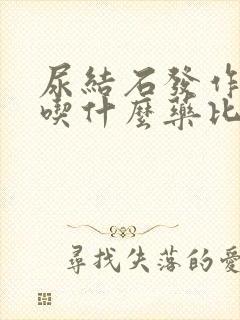 尿結石發作
喫什麼藥比
尋找失落的愛